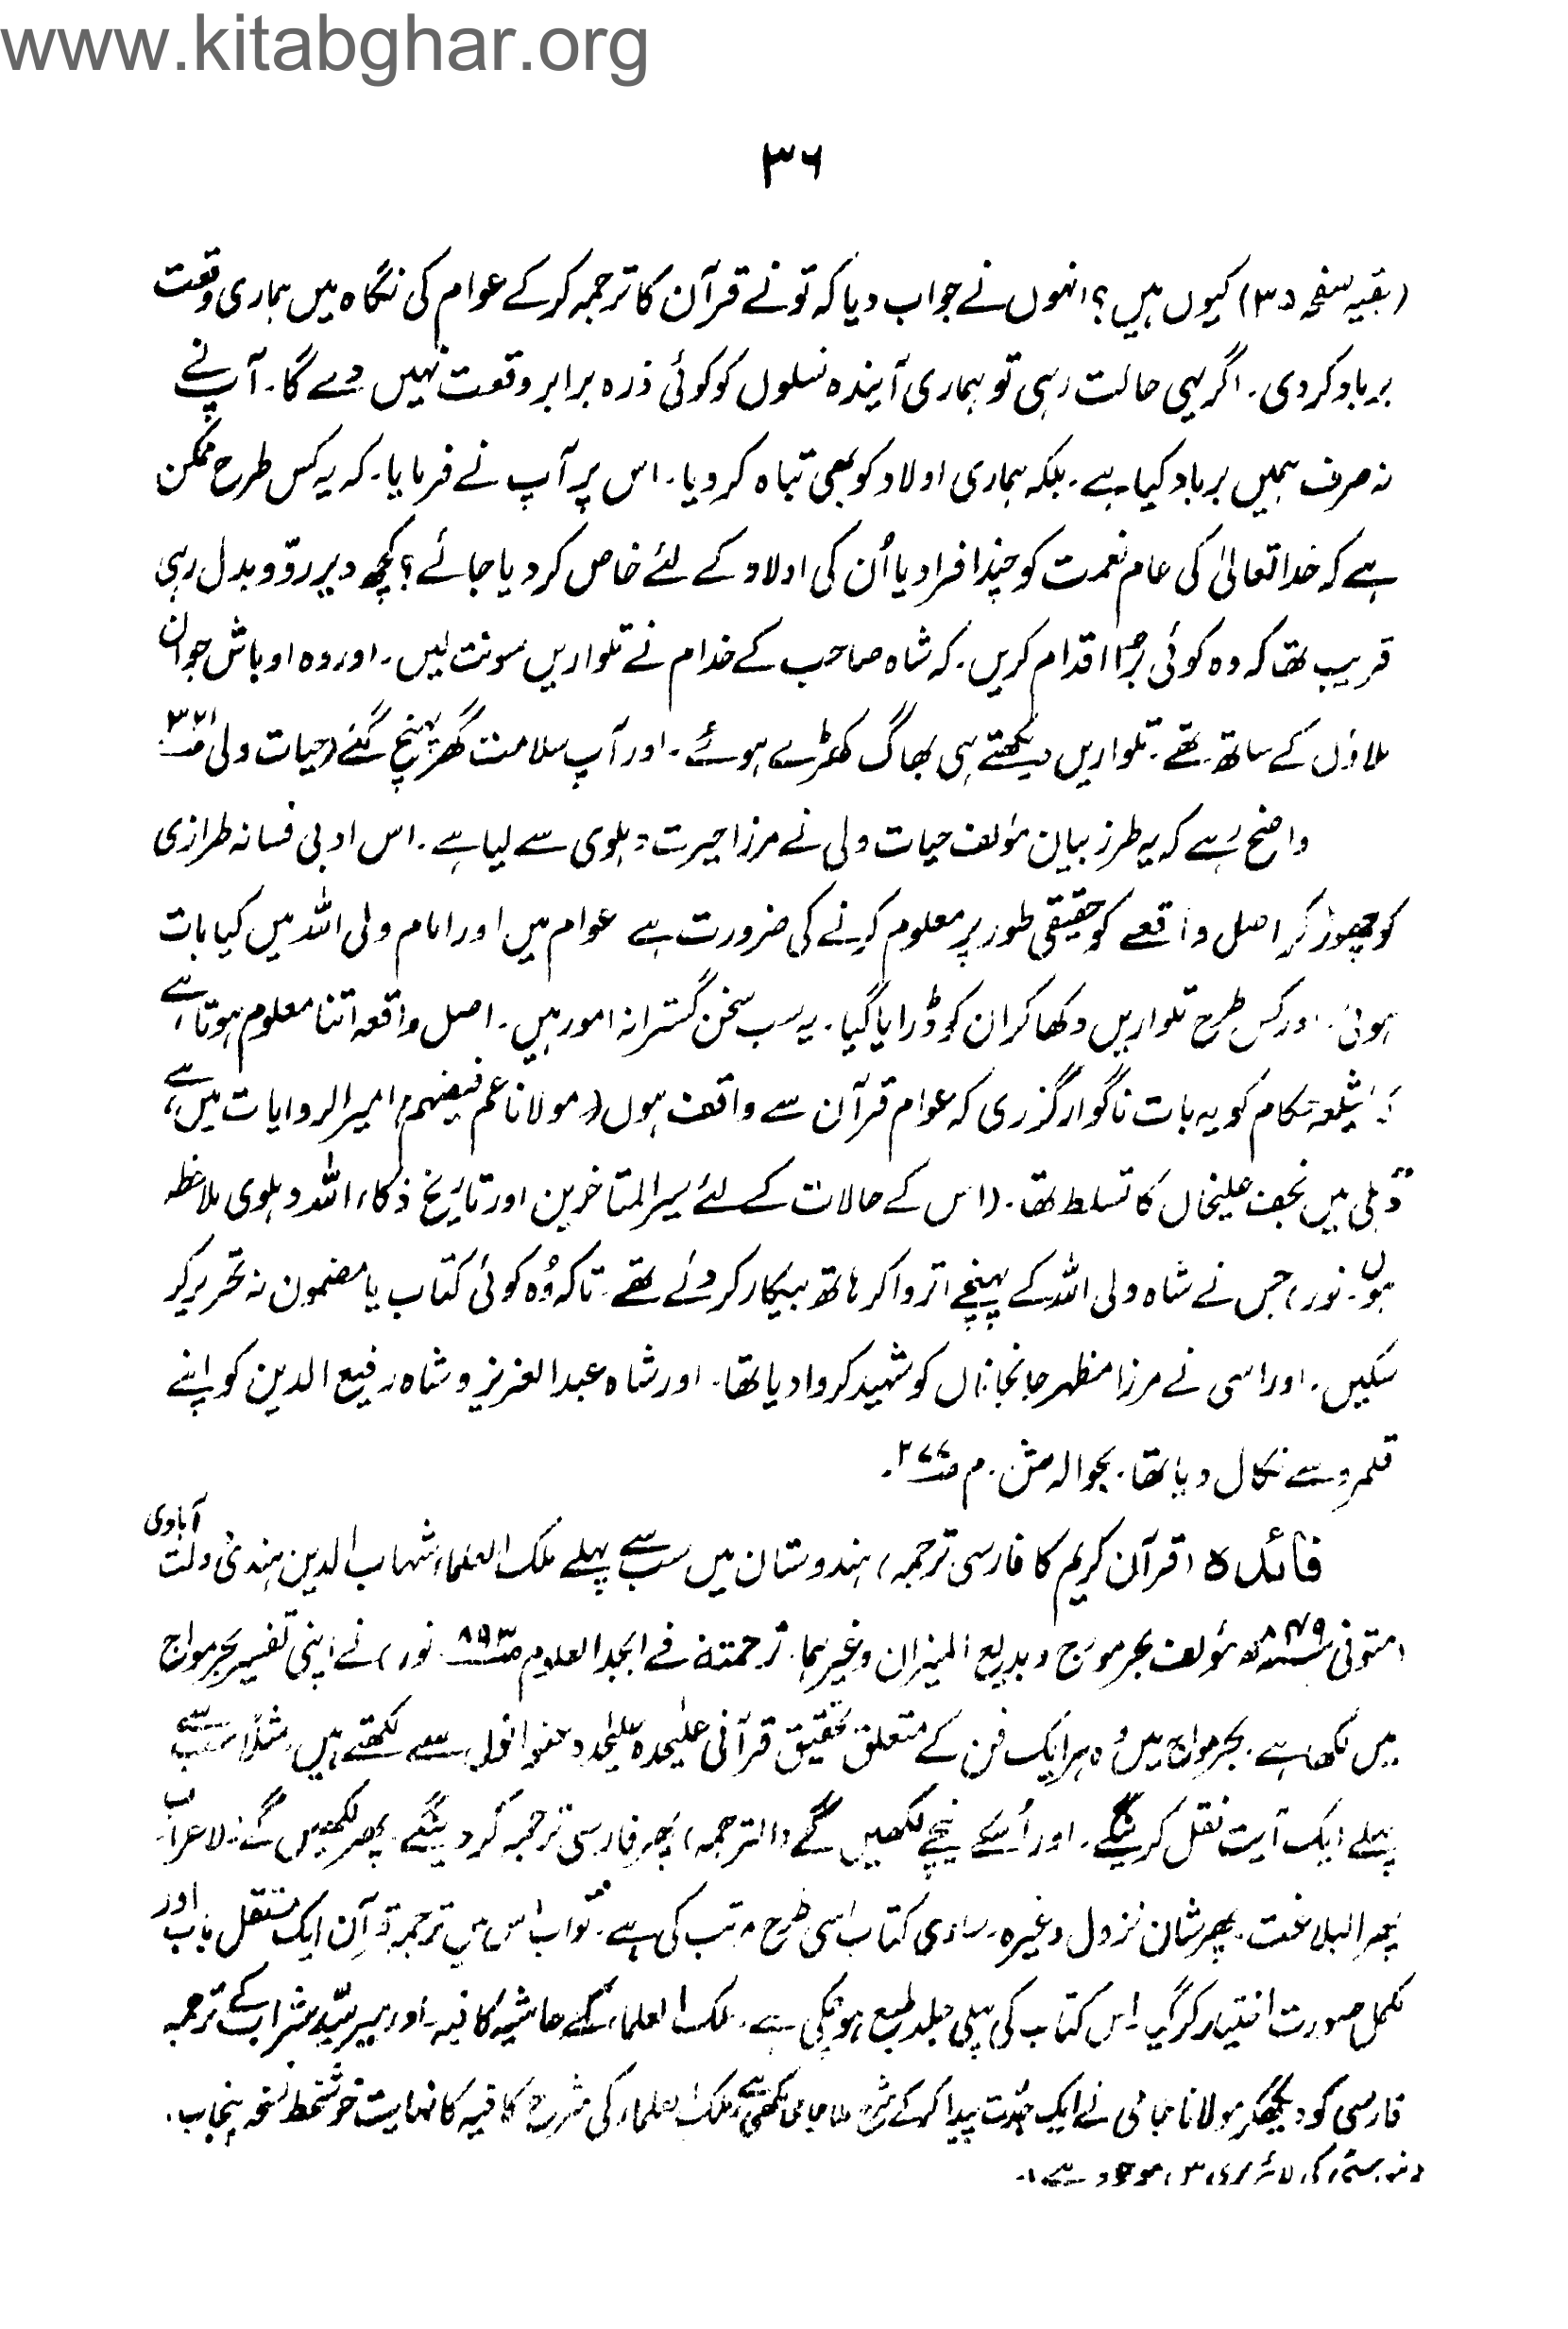 www.kitabghar.org
۳۶
(بقیہ صفحہ ۳۵) کیوں ہیں؟ انہوں نے جواب دیا کہ تو نے قرآن کا ترجمہ کر کے عوام کی نگاہ میں ہماری وقعت
برباد کر دی۔ اگر یہی حالت رہی تو ہماری آیندہ نسلوں کو کوئی ذرہ برابر وقعت نہیں دے گا۔ آپ نے
نہ صرف ہمیں برباد کیا ہے۔ بلکہ ہماری اولاد کو بھی تباہ کر دیا۔ اس پر آپ نے فرمایا۔ کہ یہ کس طرح ممکن
ہے کہ خدا تعالیٰ کی عام نعمت کو چند افراد یا اُن کی اولاد کے لئے خاص کر دیا جائے؟ کچھ دیر ردّ و بدل رہی
قریب تھا کہ وہ کوئی بُرا اقدام کریں۔ کہ شاہ صاحب کے خدام نے تلواریں سونت لیں۔ اور وہ اوباش جو ان
ملاؤں کے ساتھ تھے۔ تلواریں دیکھتے ہی بھاگ کھڑے ہوئے۔ اور آپ سلامت گھر پہنچ گئے (حیات ولی ص۳۲۱
واضح رہے کہ یہ طرز بیان مؤلف حیات ولی نے مرزا حیرت دہلوی سے لیا ہے۔ اس ادبی فسانہ طرازی
کو چھوڑ کر اصل واقعے کو حقیقی طور پر معلوم کرنے کی ضرورت ہے عوام میں اور امام ولی اللہ میں کیا بات
ہوئی۔ اور کس طرح تلواریں دکھا کر ان کو ڈرایا گیا۔ یہ سب سخن گسترانہ امور ہیں۔ اصل واقعہ اتنا معلوم ہوتا ہے
کہ شیعہ حکام کو یہ بات ناگوار گزری کہ عوام قرآن سے واقف ہوں (مولانا عم فیضہم) امیر الروایات میں ہے
دہلی میں نجف علیخاں کا تسلط تھا۔ (اس کے حالات کے لئے سیر المتاخرین اور تاریخ ذکاء اللہ دہلوی ملاحظہ
ہوں۔ نور) جس نے شاہ ولی اللہ کے پہنچے اتروا کر ہاتھ بیکار کر دئے تھے۔ تاکہ وُہ کوئی کتاب یا مضمون نہ تحریر کر
سکیں۔ اور اسی نے مرزا مظہر جانجاناں کو شہید کروا دیا تھا۔ اور شاہ عبد العزیز و شاہ رفیع الدین کو اپنے
قلمرو سے نکال دیا تھا۔ بحوالہ ش۔ م ص۲۷۷۔
فائدہ (قرآن کریم کا فارسی ترجمہ) ہندوستان میں سب سے پہلے ملک العلماء شہاب الدین ہندی دولت آبادی
(متوفی ۸۴۹ھ مؤلف بحر مواج و بدیع المیزان وغیرہما۔ ترجمتہ فے ابجد العلوم ص۸۹۳ نور) نے اپنی تفسیر بحر مواج
میں لکھا ہے۔ بحر مواج میں وُہ ہر ایک فن کے متعلق تحقیق قرآنی علیحدہ علیحدہ عنوانوں سے لکھتے ہیں۔ مثلاً سب سے
پہلے ایک آیت نقل کرینگے۔ اور اُسکے نیچے لکھیں گے (الترجمہ) پھر فارسی ترجمہ کر دینگے۔ پھر لکھیں گے: الاعراب۔
پھر البلاغت۔ پھر شان نزول وغیرہ۔ ساری کتاب اسی طرح مرتب کی ہے۔ تو اب اس میں ترجمہ قرآن ایک مستقل باب اور
مکمل صورت اختیار کر گیا۔ اس کتاب کی پہلی جلد طبع ہو چکی ہے۔ ملک العلماء کے حاشیہ کافیہ۔ اور میر سیّد شراب کے ترجمہ
فارسی کو دیکھکر مولانا جامی نے ایک جدّت پیدا کر کے شرح ملا جامی لکھی ہے۔ ملک العلماء کی شرح کافیہ کا نہایت خوشخط نسخہ پنجاب۔
کی لائبریری میں موجود ہے۔